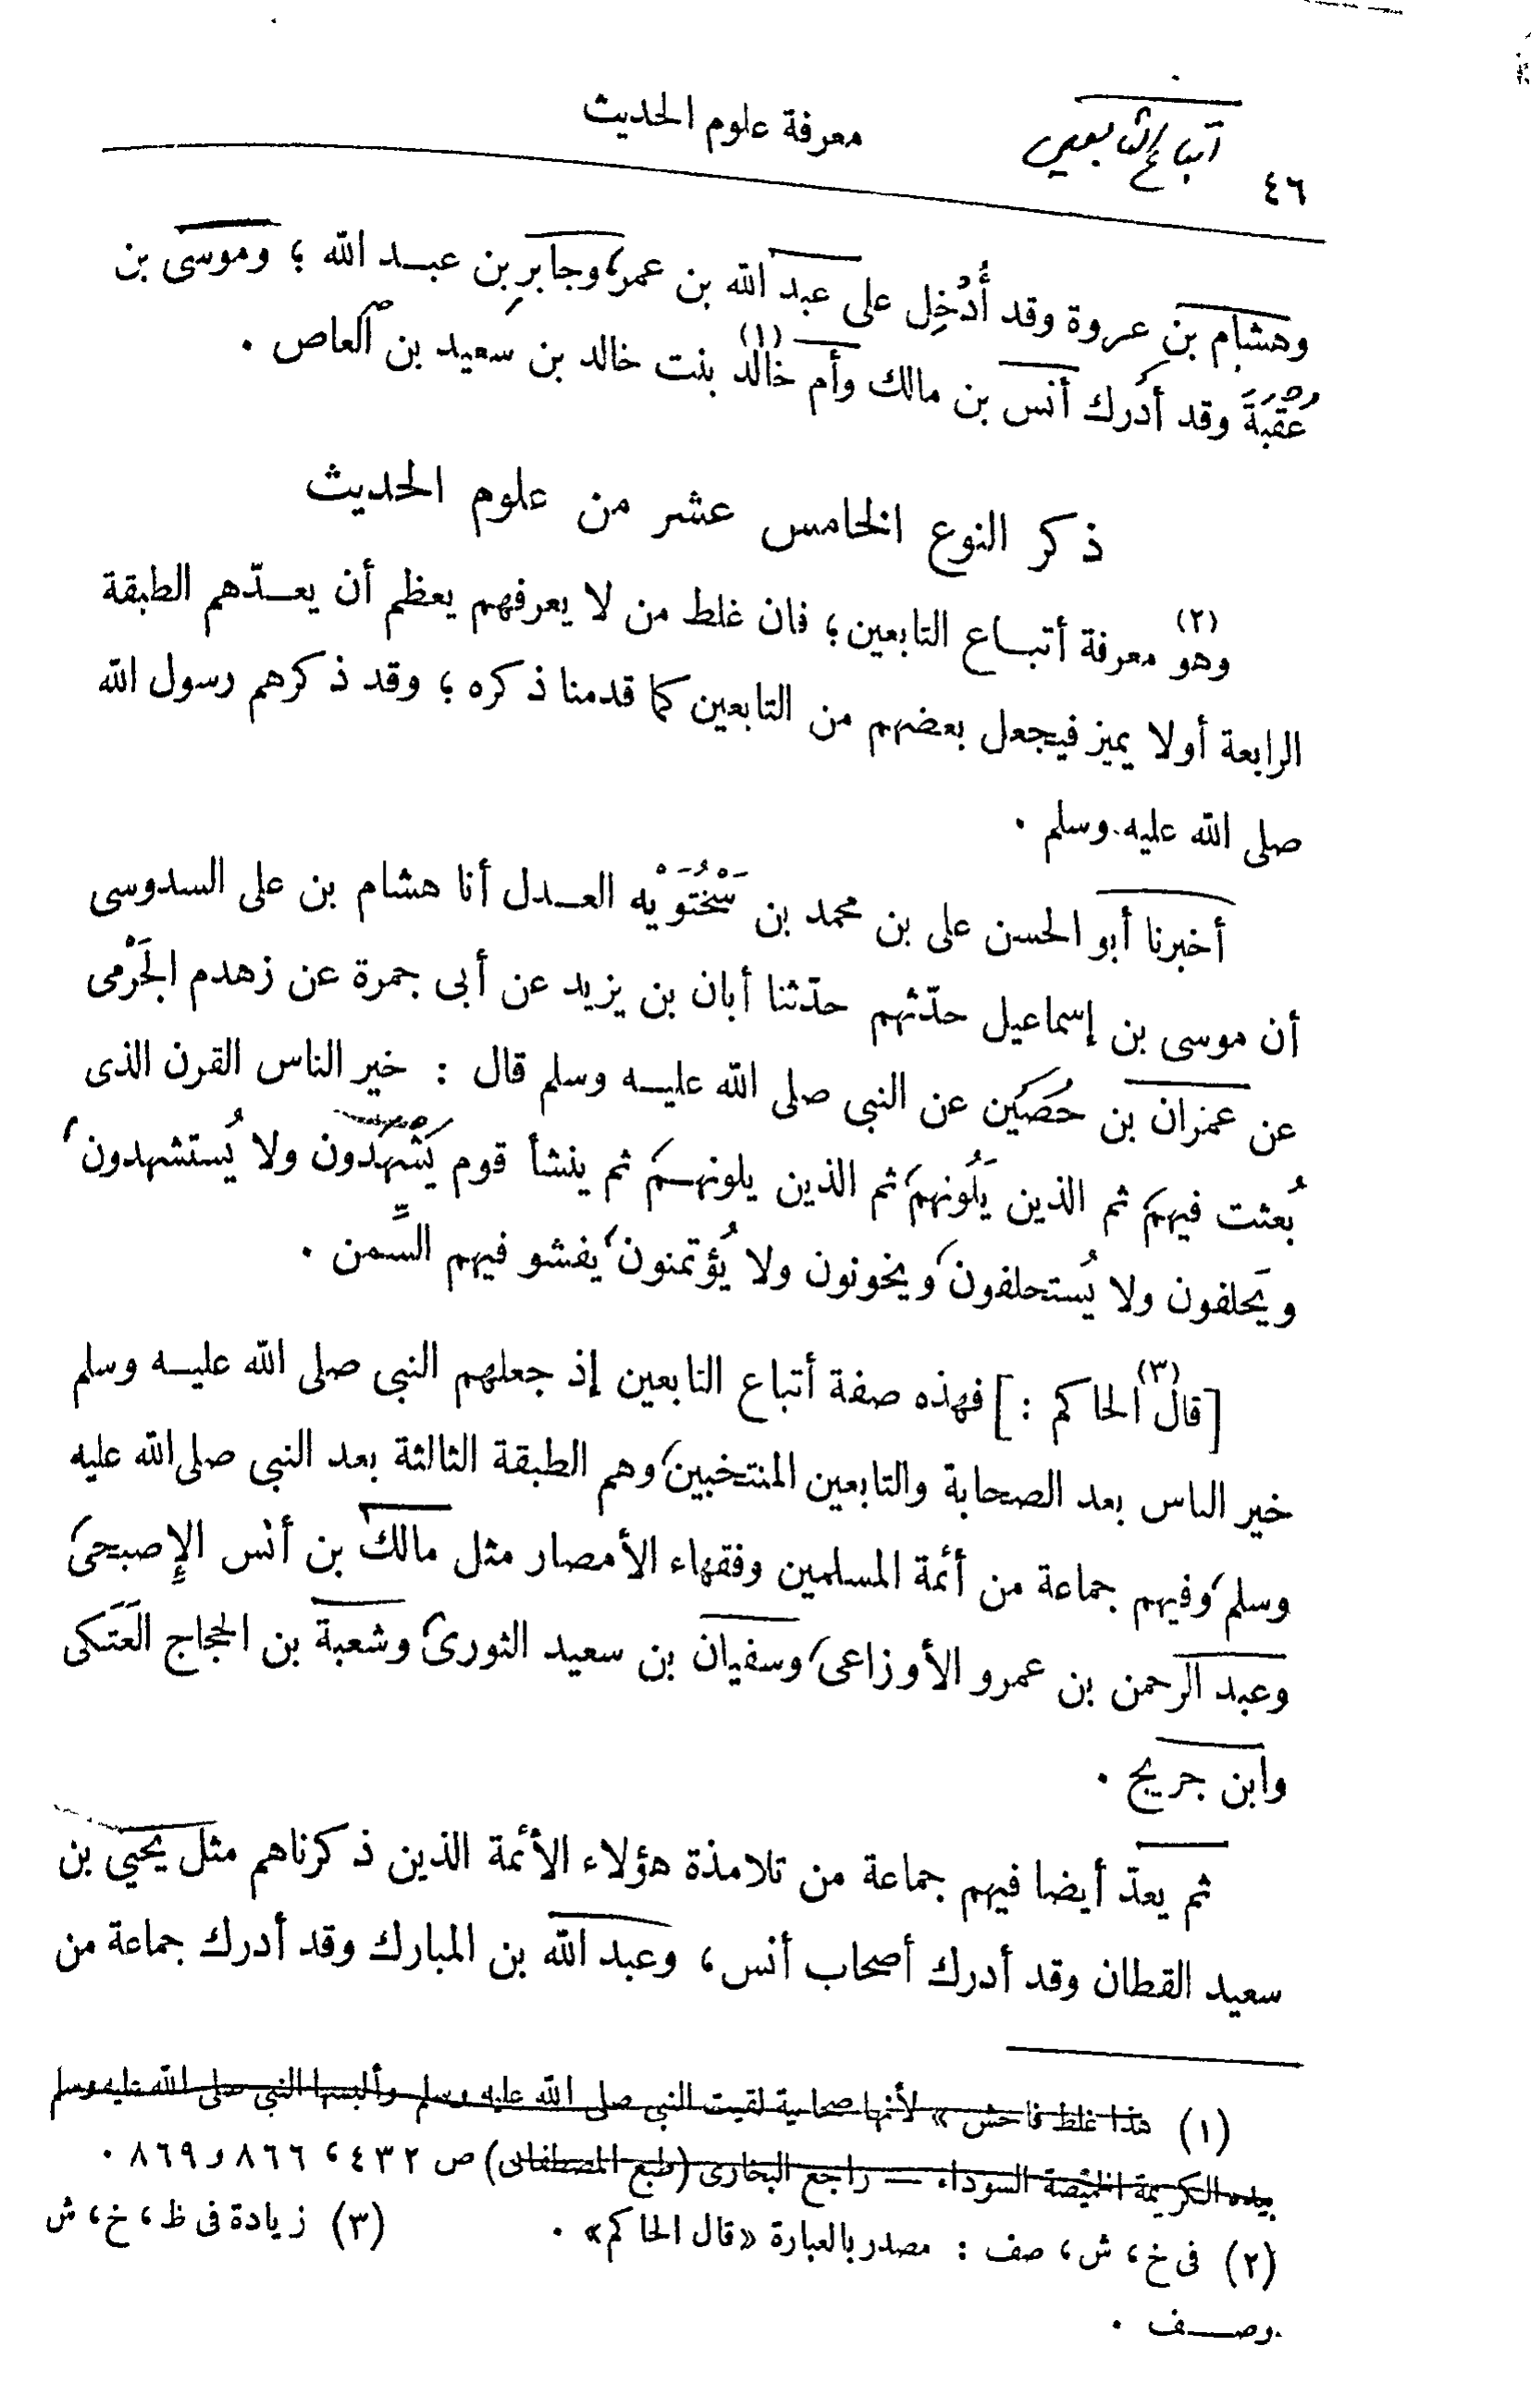 ٤٦ أتباع التابعين معرفة علوم الحديث
وهشام بن عروة وقد أُدْخِل على عبد الله بن عمر، وجابرِ بن عبد الله ؛ وموسى بن
عُقْبَةَ وقد أدرك أنس بن مالك وأم خالد (١) بنت خالد بن سعيد بن العاص .
ذكر النوع الخامس عشر من علوم الحديث
وهو (٢) معرفة أتباع التابعين؛ فان غلط من لا يعرفهم يعظم أن يعدّهم الطبقة
الرابعة أو لا يميز فيجعل بعضهم من التابعين كما قدمنا ذكره ؛ وقد ذكرهم رسول الله
صلى الله عليه وسلم .
أخبرنا أبو الحسن على بن محمد بن سَخْتُوَيْه العدل أنا هشام بن على السدوسى
أن موسى بن إسماعيل حدّثهم حدّثنا أبان بن يزيد عن أبى جمرة عن زهدم الجَرْمى
عن عمران بن حُصَين عن النبى صلى الله عليه وسلم قال : خير الناس القرن الذى
بُعثت فيهم ثم الذين يَلُونهم، ثم الذين يلونهم ثم ينشأ قوم يَشْهَدون ولا يُستشهدون،
ويَحلفون ولا يُستحلفون، ويخونون ولا يُؤتمنون، يفشو فيهم السِّمن .
[قال (٣) الحاكم :] فهذه صفة أتباع التابعين إذ جعلهم النبى صلى الله عليه وسلم
خير الناس بعد الصحابة والتابعين المنتخبين، وهم الطبقة الثالثة بعد النبى صلى الله عليه
وسلم، وفيهم جماعة من أئمة المسلمين وفقهاء الأمصار مثل مالك بن أنس الإصبحى
وعبد الرحمن بن عمرو الأوزاعى، وسفيان بن سعيد الثورى، وشعبة بن الحجاج العَتَكى
وابن جريج .
ثم يعدّ أيضا فيهم جماعة من تلامذة هؤلاء الأئمة الذين ذكرناهم مثل يحيي بن
سعيد القطان وقد أدرك أصحاب أنس، وعبد الله بن المبارك وقد أدرك جماعة من
(١) هذا غلط فاحش » لأنها صحابية لقيت النبى صلى الله عليه وسلم وألبسها النبى صلى الله عليه وسلم
بيده الكريمة الخميصة السوداء — راجع البخارى (طبع المصطفائى) ص ٤٣٢، ٨٦٦ و ٨٦٩ .
(٢) فى خ، ش، صف : مصدر بالعبارة «قال الحاكم» . (٣) زيادة فى ظ، خ، ش
وصف .